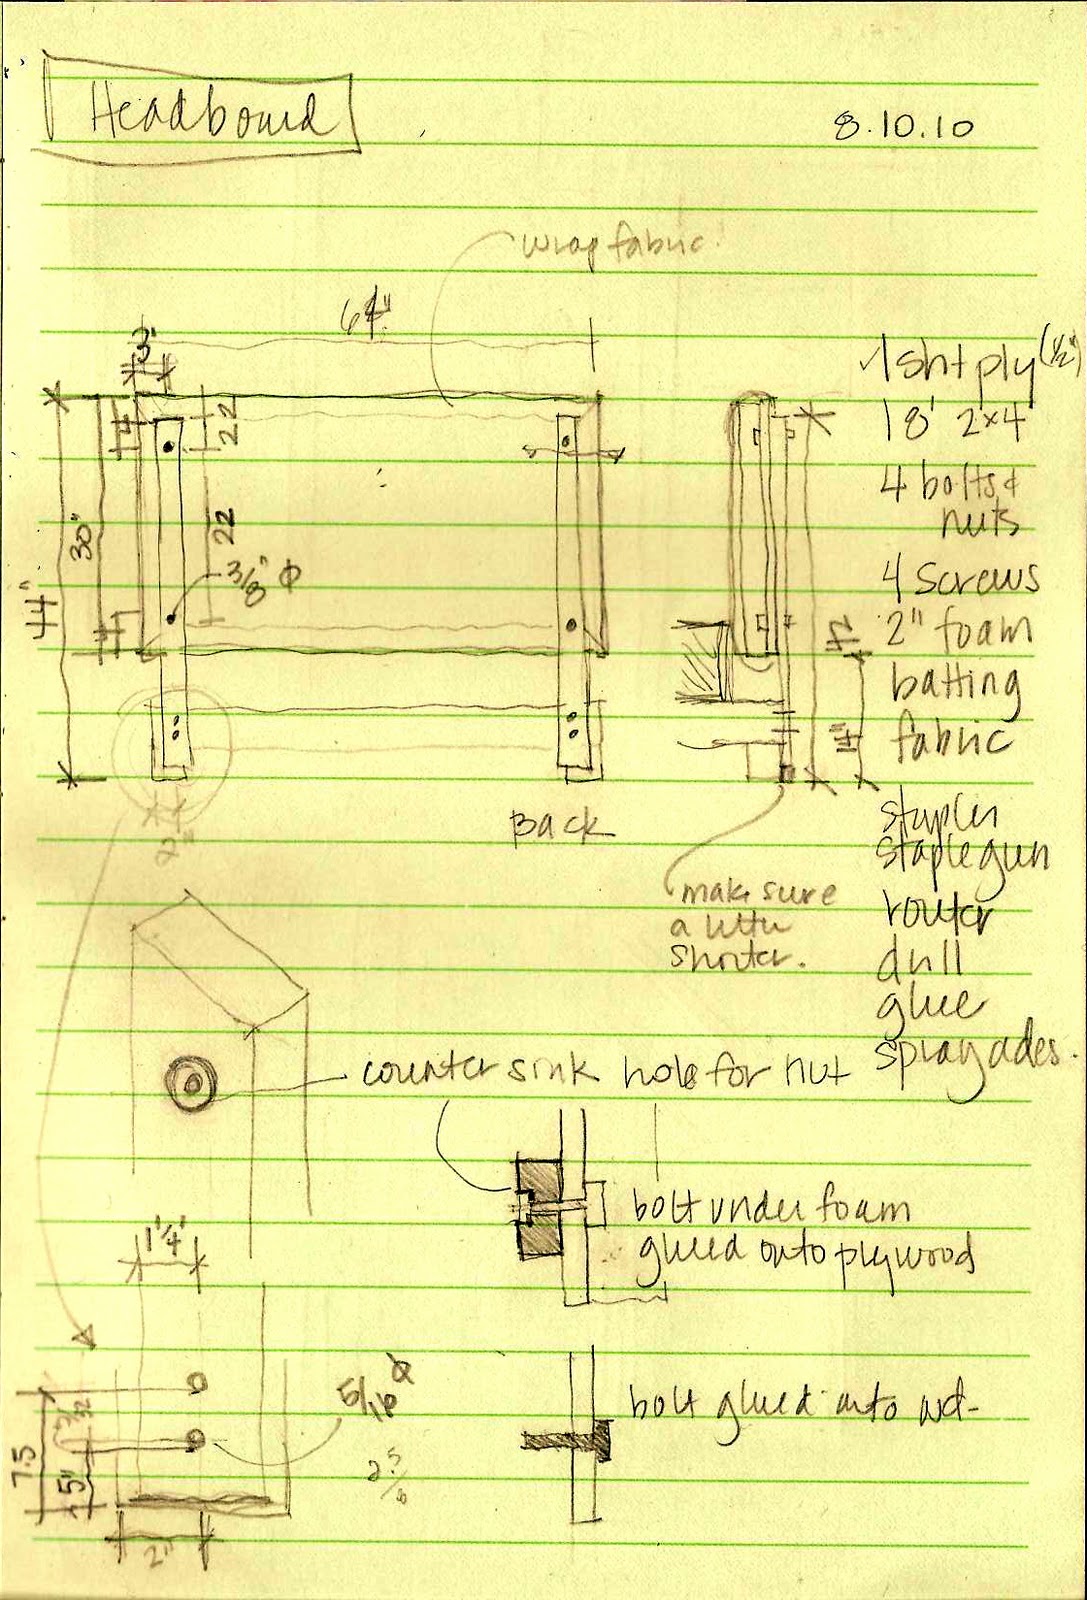 Headboard
8.10.10
wrap fabric
64"
3"
4
22
30"
22
3/8" Ø
44"
4
2"
Back
14
make sure
a little
shorter.
1 sht ply (1/2")
18' 2x4
4 bolts &
nuts
4 screws
2" foam
batting
fabric
stapler
staplegun
router
drill
glue
spray ades.
counter sink hole for nut
bolt under foam
glued onto plywood
1 1/4"
5/16 Ø
bolt glued onto wd-
7.5
5"
2"